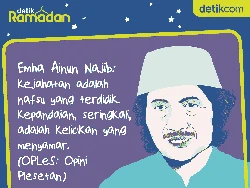 detik
Ramadan
detikcom
Emha Ainun Najib:
Kejahatan adalah
nafsu yang terdidik.
Kepandaian, seringkali,
adalah kelicikan yang
menyamar.
(OPLeS: Opini
Plesetan)